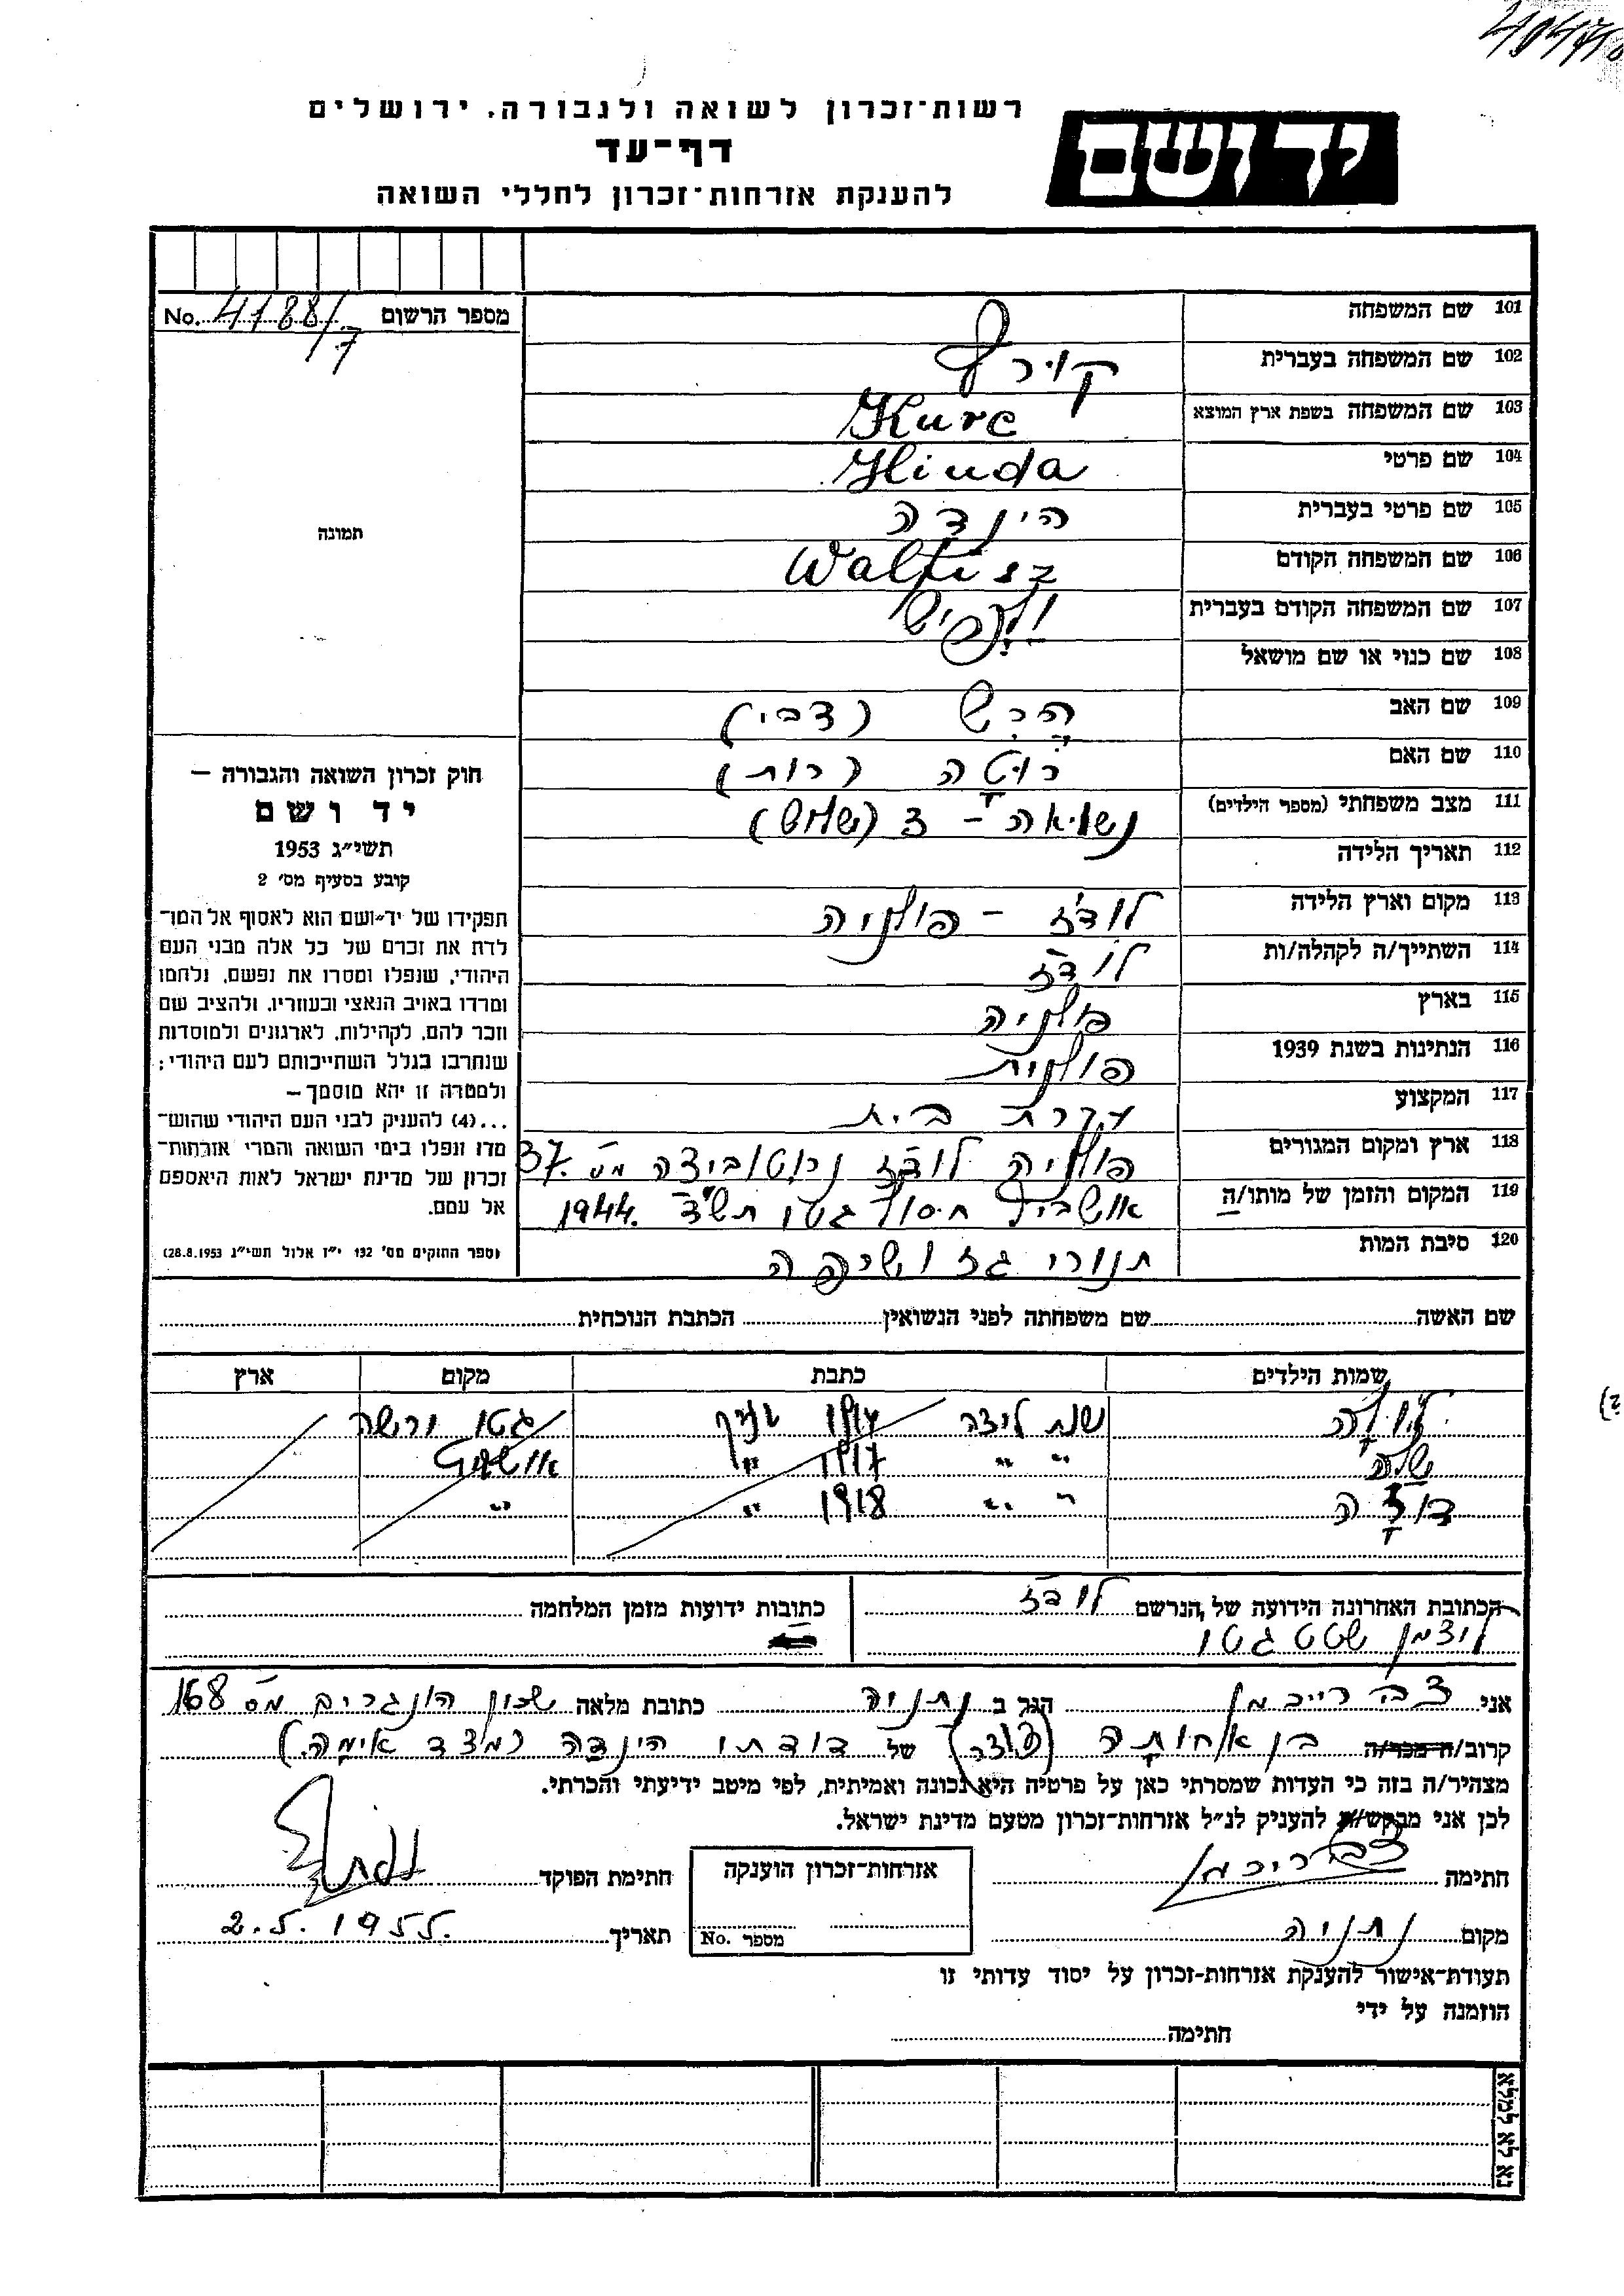 רשות-זכרון לשואה ולגבורה, ירושלים
דף-עד
להענקת אזרחות-זכרון לחללי השואה
יד ושם
מספר הרשום No. 4188/7
101 שם המשפחה
102 שם המשפחה בעברית קורץ
103 שם המשפחה בשפת ארץ המוצא Kurc
104 שם פרטי Hinda
105 שם פרטי בעברית הינדה
106 שם המשפחה הקודם Walfisz
107 שם המשפחה הקודם בעברית ולפיש
108 שם כנוי או שם מושאל
109 שם האב הרש (צבי)
110 שם האם רוטה (רות)
111 מצב משפחתי (מספר הילדים) נשואה - 3 (שלוש)
112 תאריך הלידה
113 מקום וארץ הלידה לודז - פולניה
114 השתייך/ה לקהלה/ות לודז
115 בארץ פולניה
116 הנתינות בשנת 1939 פולנית
117 המקצוע עקרת בית
118 ארץ ומקום המגורים פולניה לודז נרוטוביצה מס 37.
119 המקום והזמן של מותו/ה חיסול גטו תש"ד 1944.
120 סיבת המות תנורי גז ושריפה
תמונה
חוק זכרון השואה והגבורה —
יד ושם
תשי״ג 1953
קובע בסעיף מס׳ 2
תפקידו של יד-ושם הוא לאסוף אל המו-
לדת את זכרם של כל אלה מבני העם
היהודי, שנפלו ומסרו את נפשם, נלחמו
ומרדו באויב הנאצי ובעוזריו, ולהציב שם
וזכר להם, לקהילות, לארגונים ולמוסדות
שנחרבו בגלל השתייכותם לעם היהודי;
ולמטרה זו יהא מוסמך—
...(4) להעניק לבני העם היהודי שהוש-
מדו ונפלו בימי השואה והמרי אזרחות-
זכרון של מדינת ישראל לאות היאספם
אל עמם.
(ספר החוקים מס׳ 132 י״ז אלול תשי״ג 28.8.1953)
שם האשה שם משפחתה לפני הנשואין הכתבת הנוכחית
שמות הילדים כתבת מקום ארץ
שנת לידה גטו ורשה
" " 1917 "
דוזה " " 1918 " "
הכתובת האחרונה הידועה של הנרשם לודז
ליצמן שטט גטו
כתובות ידועות מזמן המלחמה
אני צבי רייכמן הגר ב נתניה כתובת מלאה שכון הונגרים מס 168
קרוב/ה מכר/ה בן אחותה של דודתו הינדה (מצד אימה.)
מצהיר/ה בזה כי העדות שמסרתי כאן על פרטיה היא נכונה ואמיתית, לפי מיטב ידיעתי והכרתי.
לכן אני מבקש/ת להעניק לנ״ל אזרחות-זכרון מטעם מדינת ישראל.
חתימה צבי רייכמן
אזרחות-זכרון הוענקה
מספר No.
חתימת הפוקד
מקום נתניה
תאריך 2.5.1955.
תעודת-אישור להענקת אזרחות-זכרון על יסוד עדותי זו
הוזמנה על ידי
חתימה
נא לא למלא